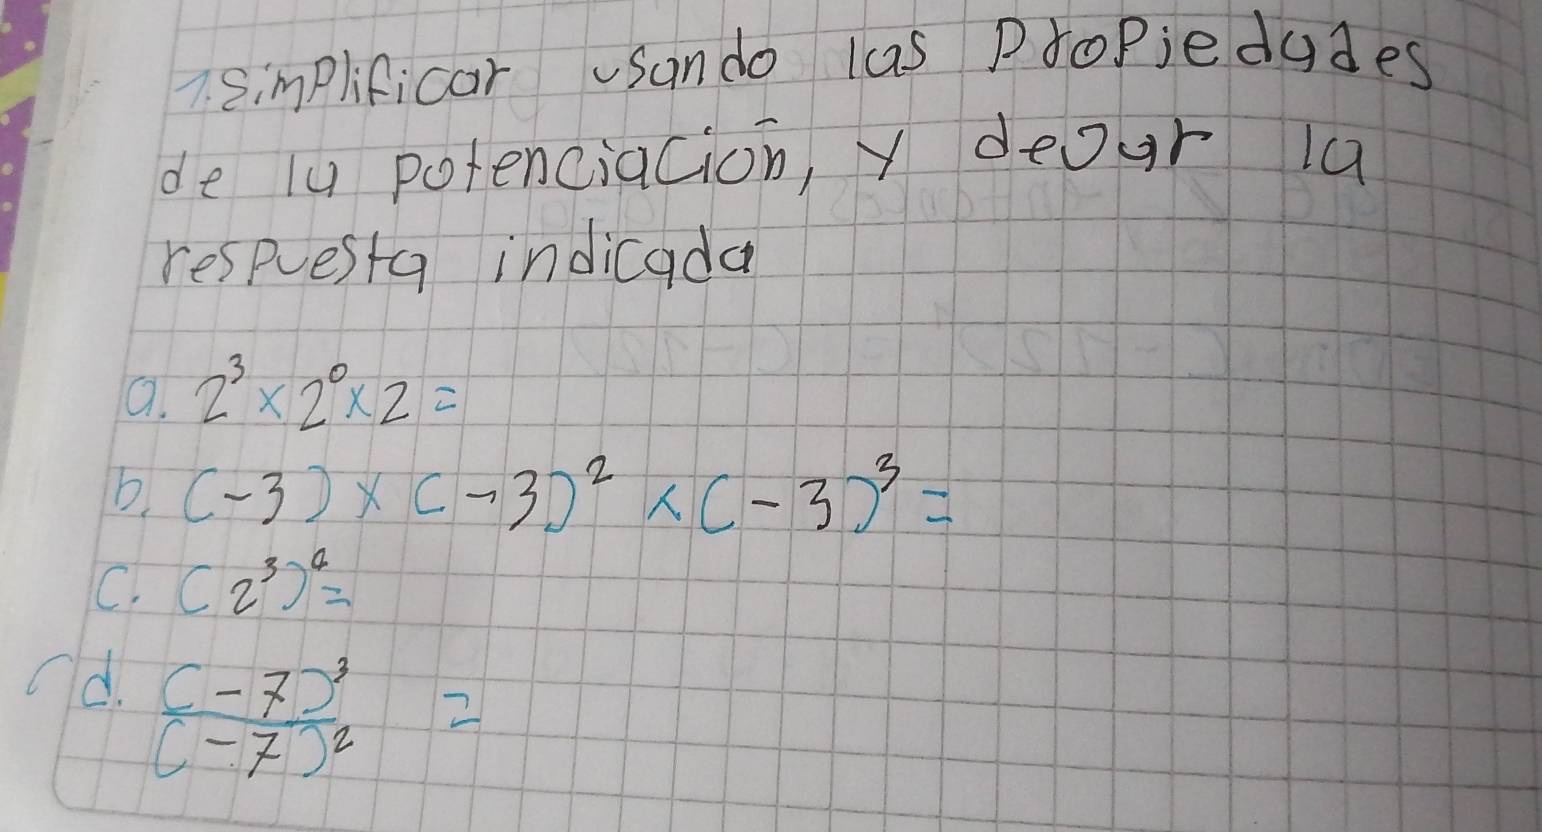 1. Simplificar usando las Propiedades
de la potenciación, y dejar la
respuesta indicada
a. 2³ × 2⁰ × 2 =
b. (-3) × (-3)² × (-3)³ =
c. (2³)⁴ =
d. (-7)³ =
(-7)²